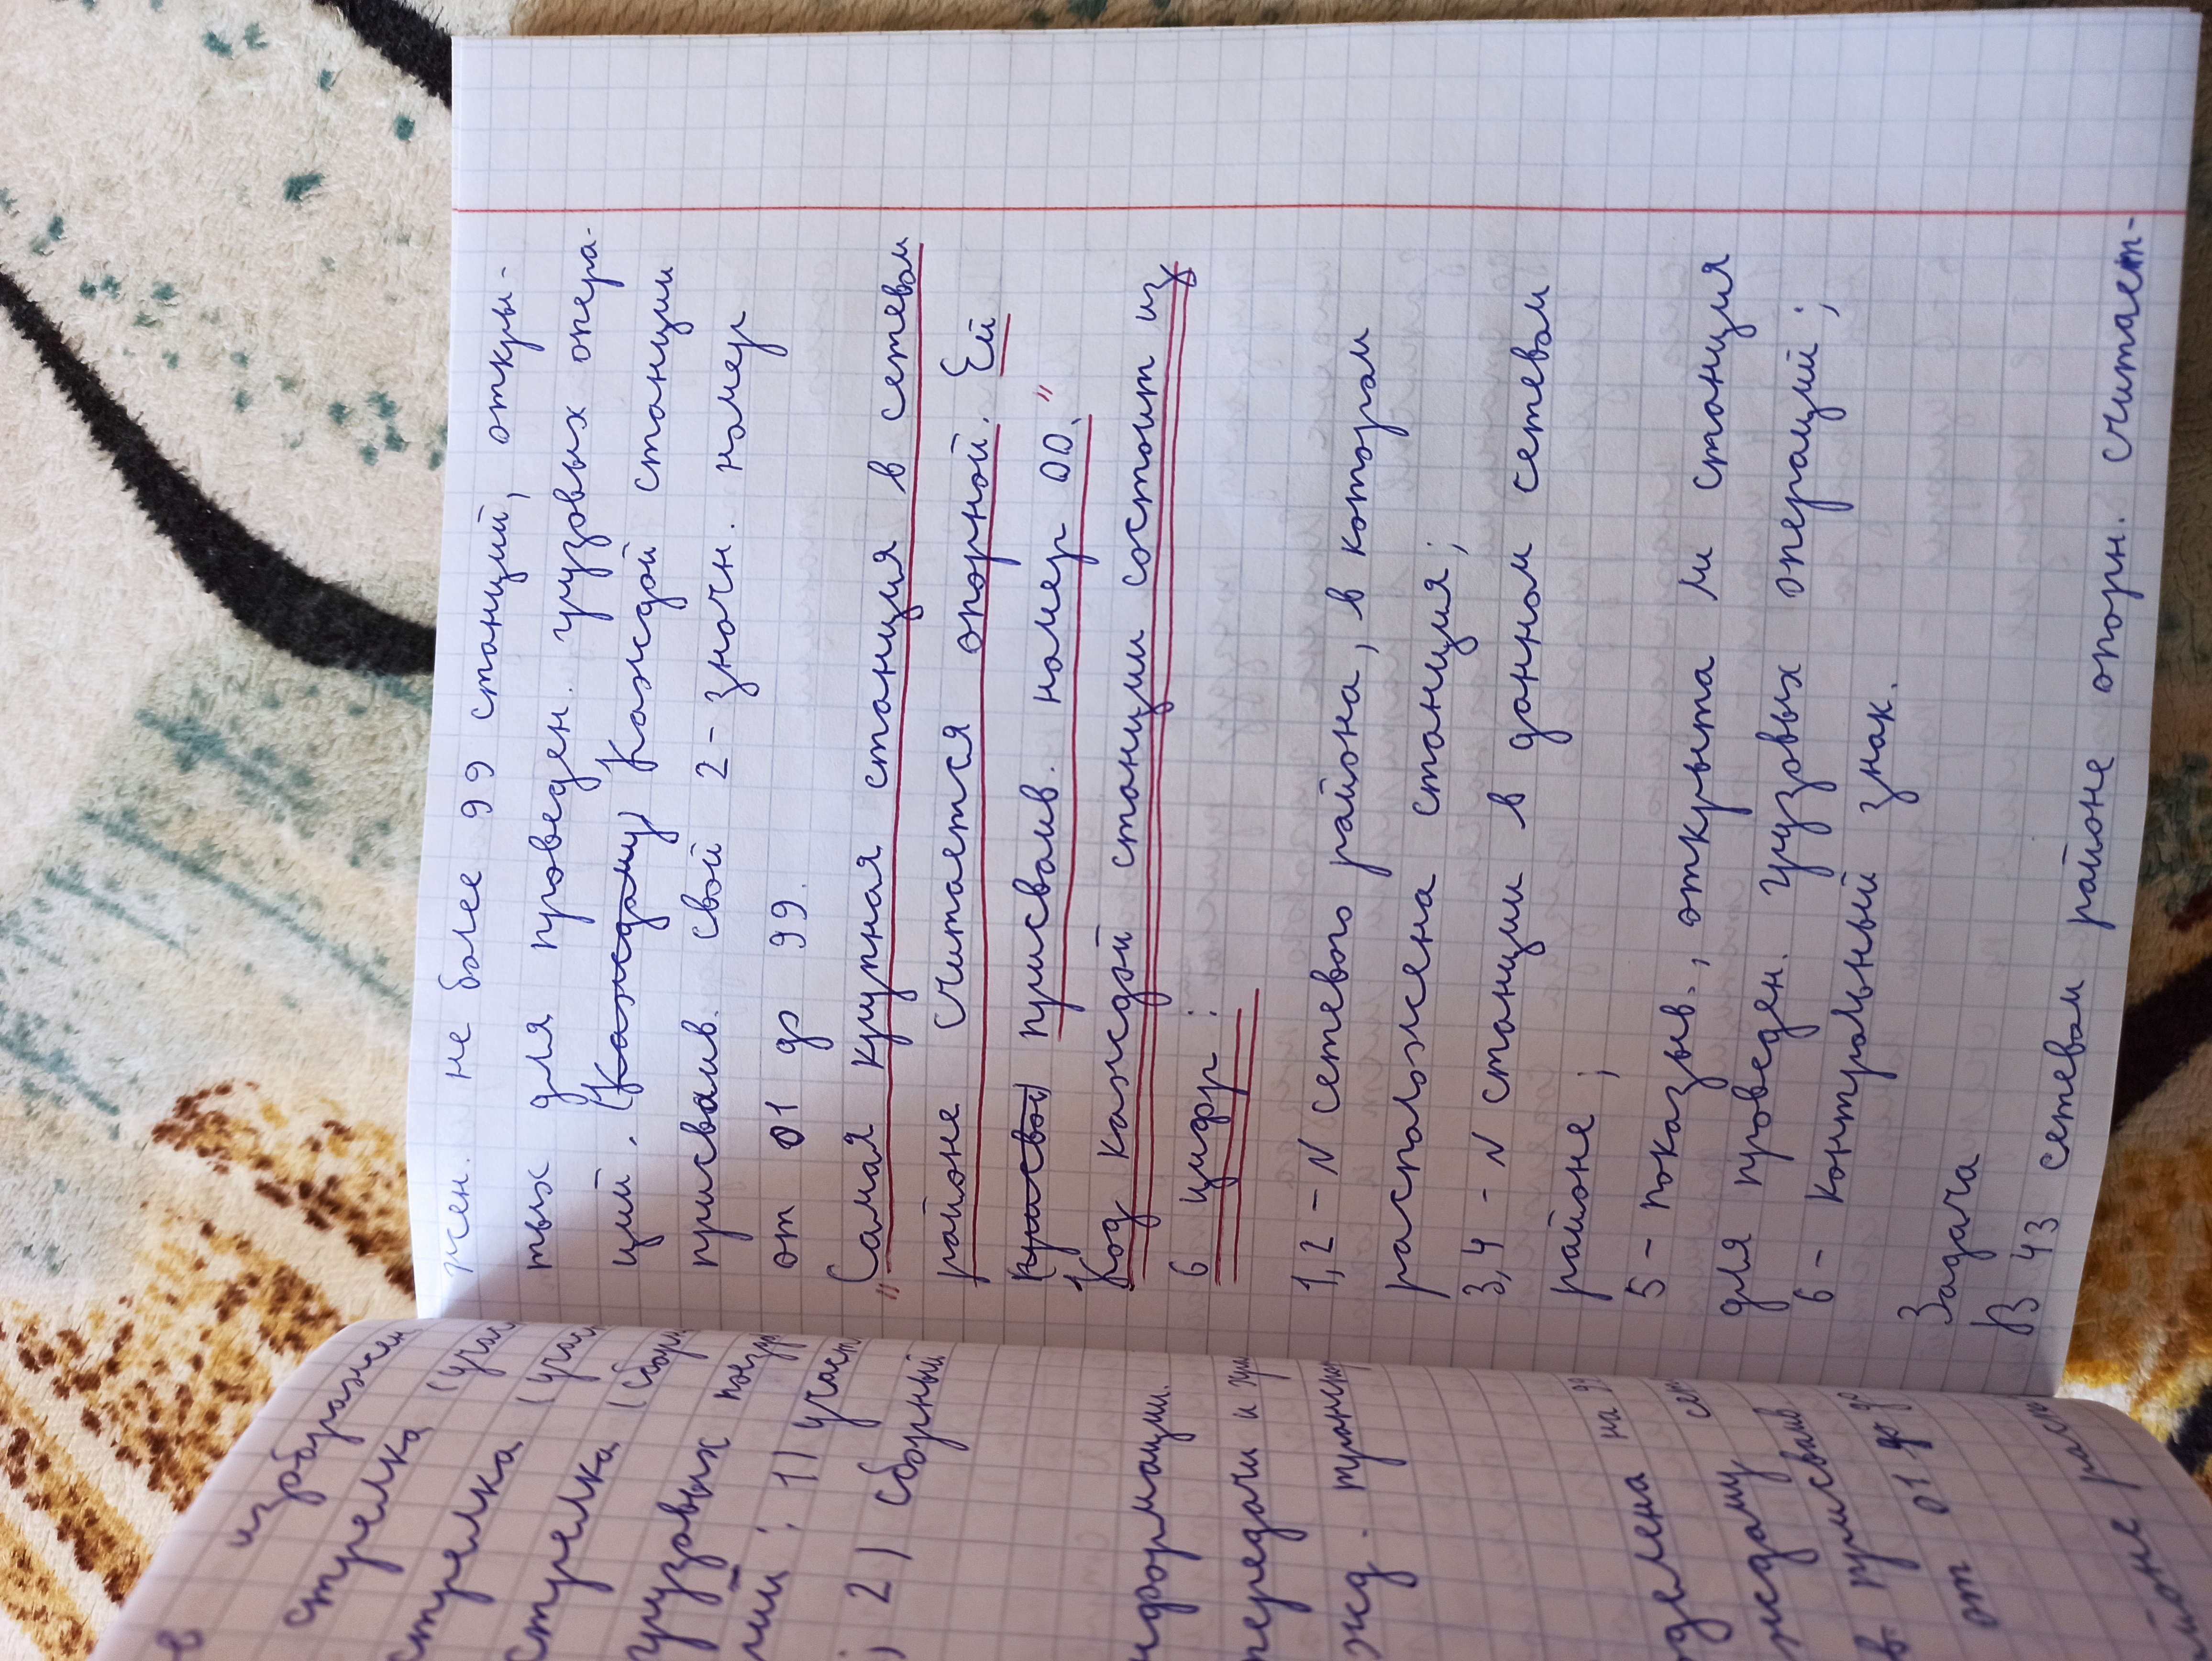 жен. не более 99 станций, откры-
тых для проведен. грузовых опера-
ций. (Каждому) Каждой станции
присваив. свой 2-значн. номер
от 01 до 99.
"Самая крупная станция в сетевом
районе считается опорной. Ей
(присвой) присваив. номер 00."
Код каждой станции состоит из
6 цифр:
1,2 - N сетевого района, в котором
расположена станция;
3,4 - N станции в данном сетевом
районе;
5 - показыв., открыта ли станция
для проведен. грузовых операций;
6 - контрольный знак.
Задача
В 43 сетевом районе опорн. считает-
в изображен
стрелка (учас
стрелка (учас
стрелка (сборн
грузовых поезд
ший: 1) участ
, 2) сборный
нформации.
передачи и
жд. трансп
делена на 99
ждому сет
в. присваив.
от 01 до
районе расп